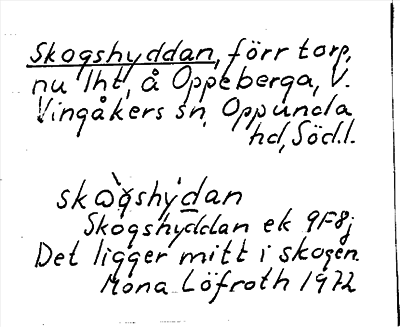 Skogshyddan, förr torp,
nu lht, å Oppeberga, V.
Vingåkers sn, Oppunda
hd, Söd.l.
skọ̀gshýdan
Skogshyddan ek 9F8j
Det ligger mitt i skogen.
Mona Löfroth 1972